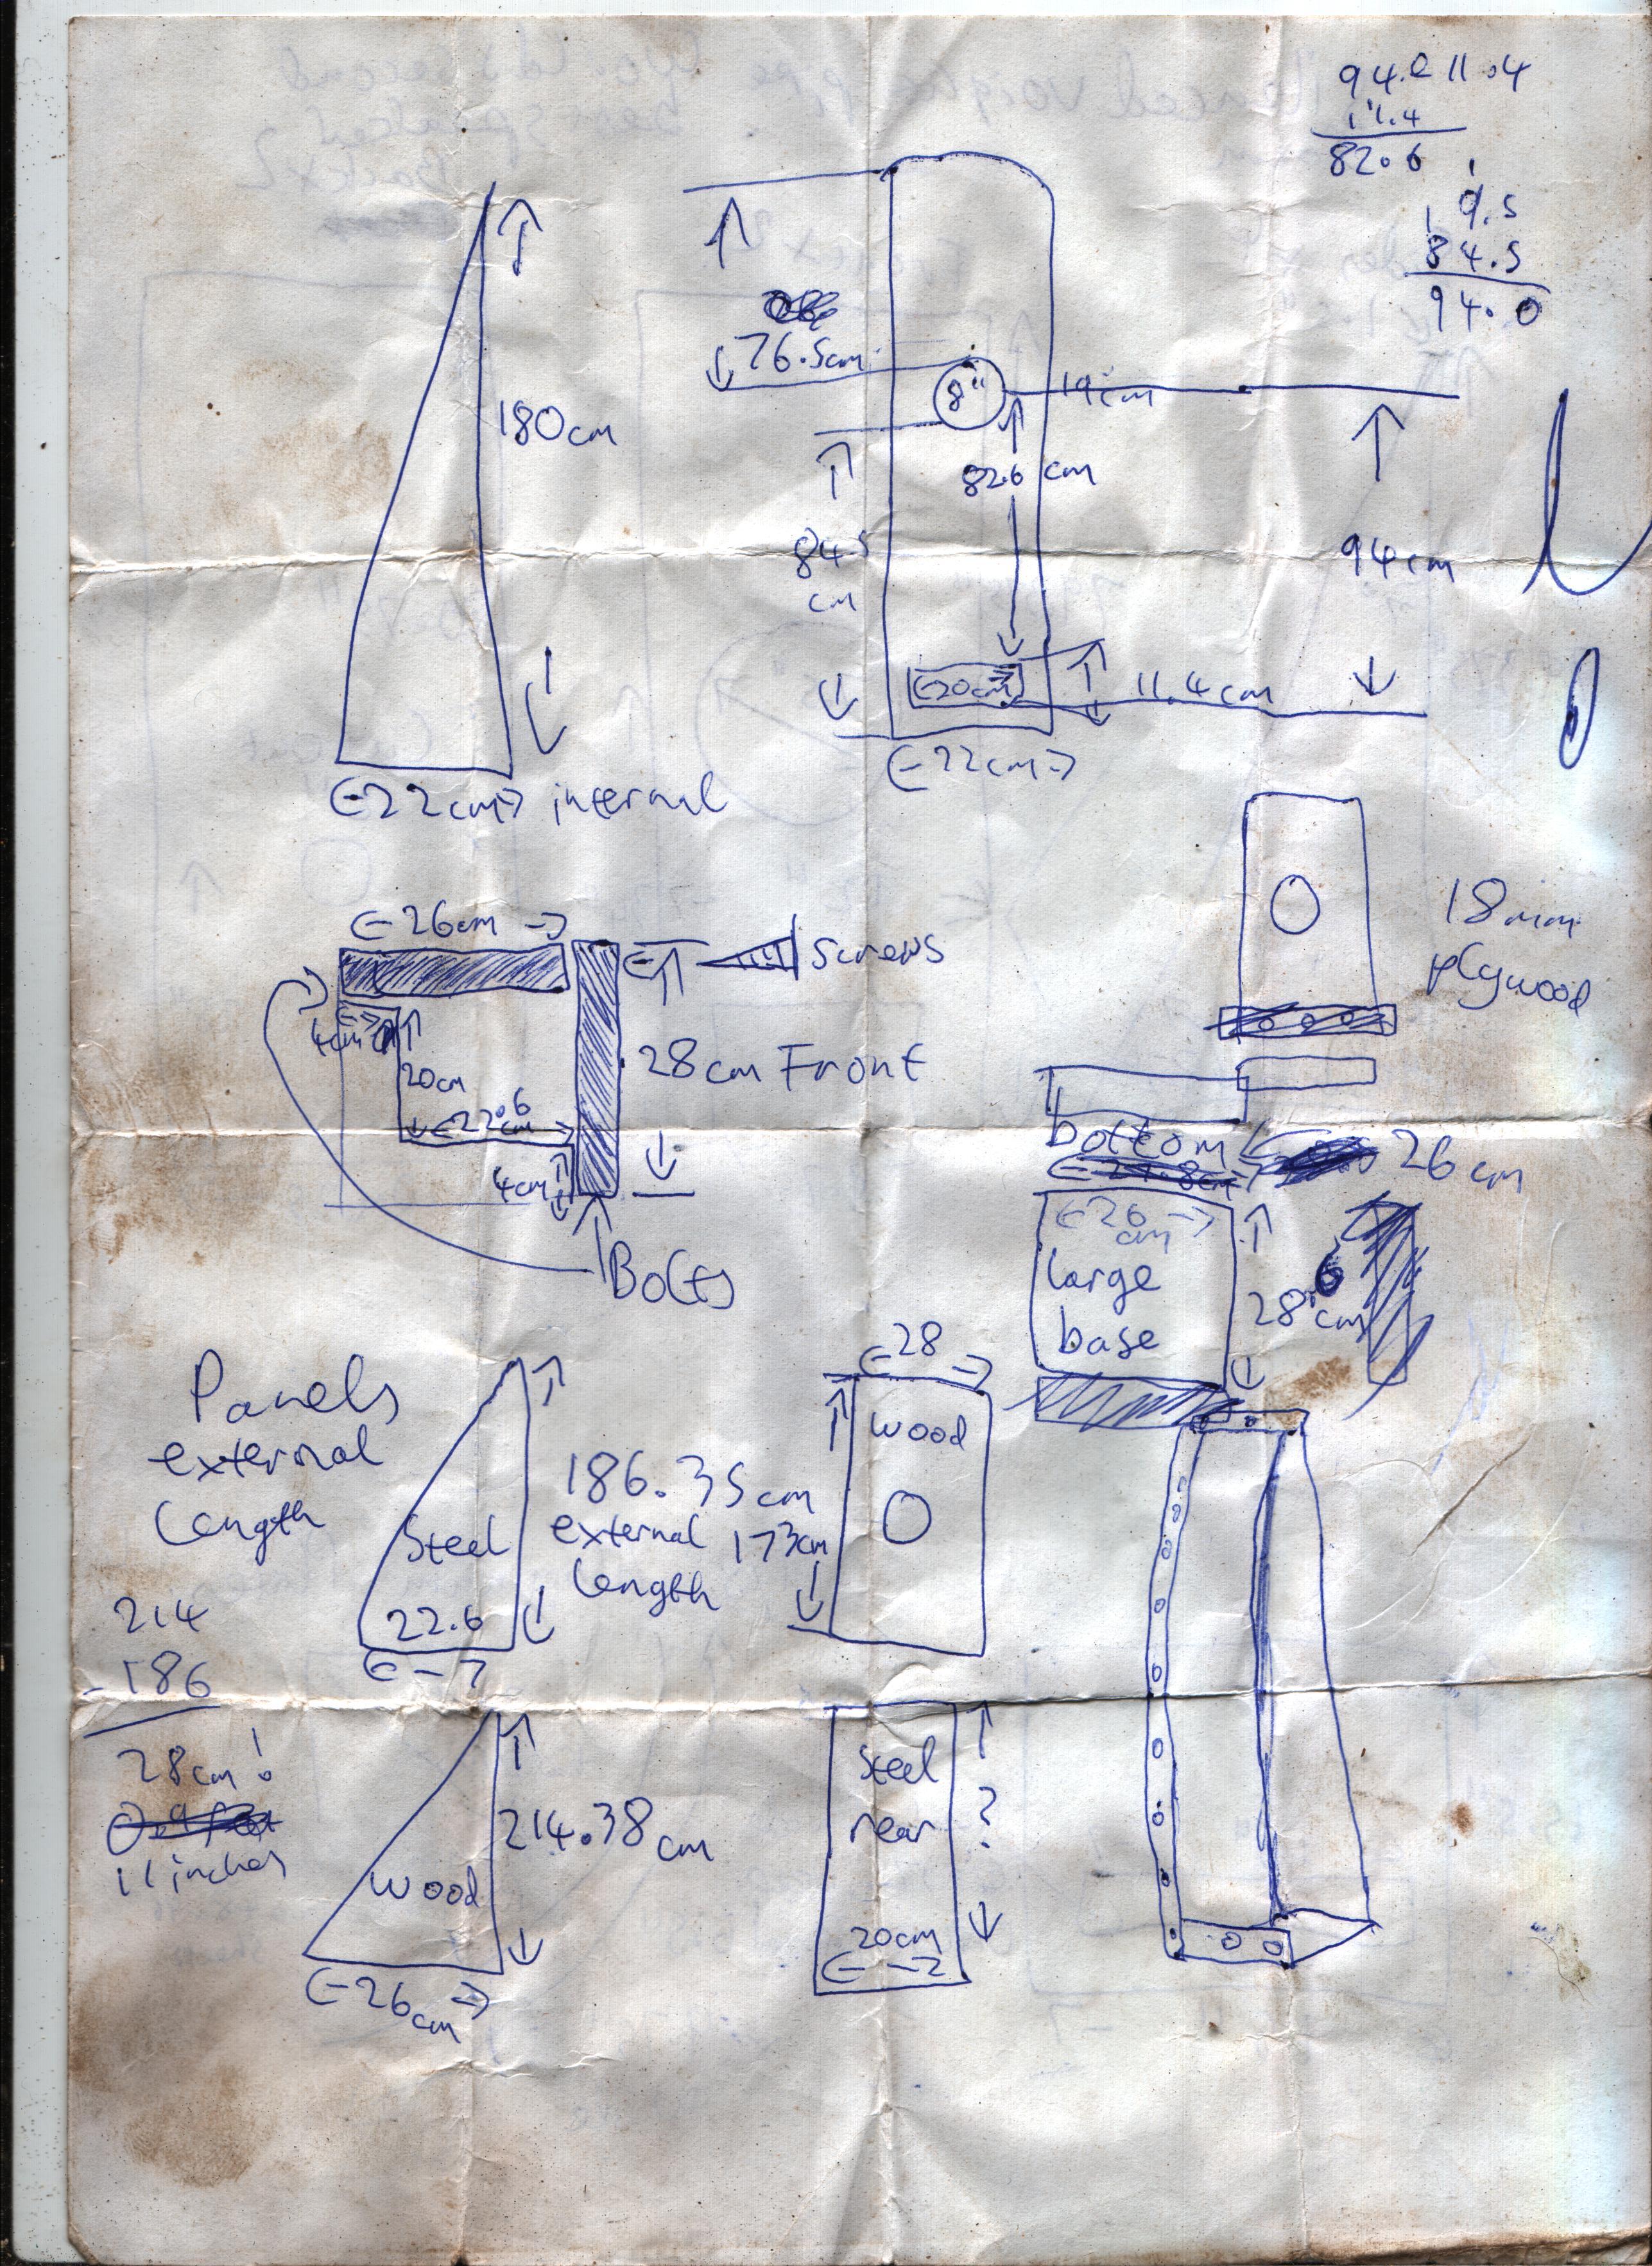 94.0 11.4
11.4
82.6
9.5
84.5
94.0
180cm
76.5cm
8"
19cm
82.6 cm
84.5
cm
94cm
20cm
11.4cm
22cm
22cm internal
18mm
plywood
26cm
screws
4cm
20cm
22.6
cm
28cm Front
4cm
Bolts
bottom
26cm
26
cm
large
base
28cm
Panels
external
length
Steel
22.6
186.35cm
external
length
28
wood
173cm
214
- 186
28cm!
11 inches
wood
214.38cm
26cm
Steel
rear
?
20cm